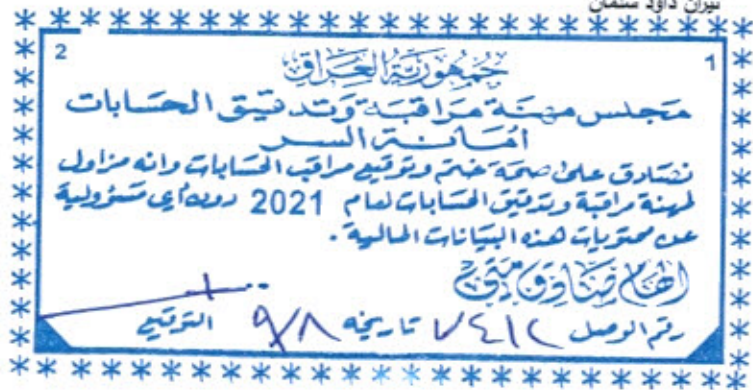 نيران داود سلمان
2
1
جمهورية العراق
مجلس مهنة مراقبة وتدقيق الحسابات
أمانة السر
نصادق على صحة ختم وتوقيع مراقب الحسابات وانه مزاول
لمهنة مراقبة وتدقيق الحسابات لعام 2021 دون أي مسؤولية
عن محتويات هذه البيانات المالية .
الهام صادق متي
رقم الوصل ٧٤١٢ تاريخه ٩/٨ التوقيع